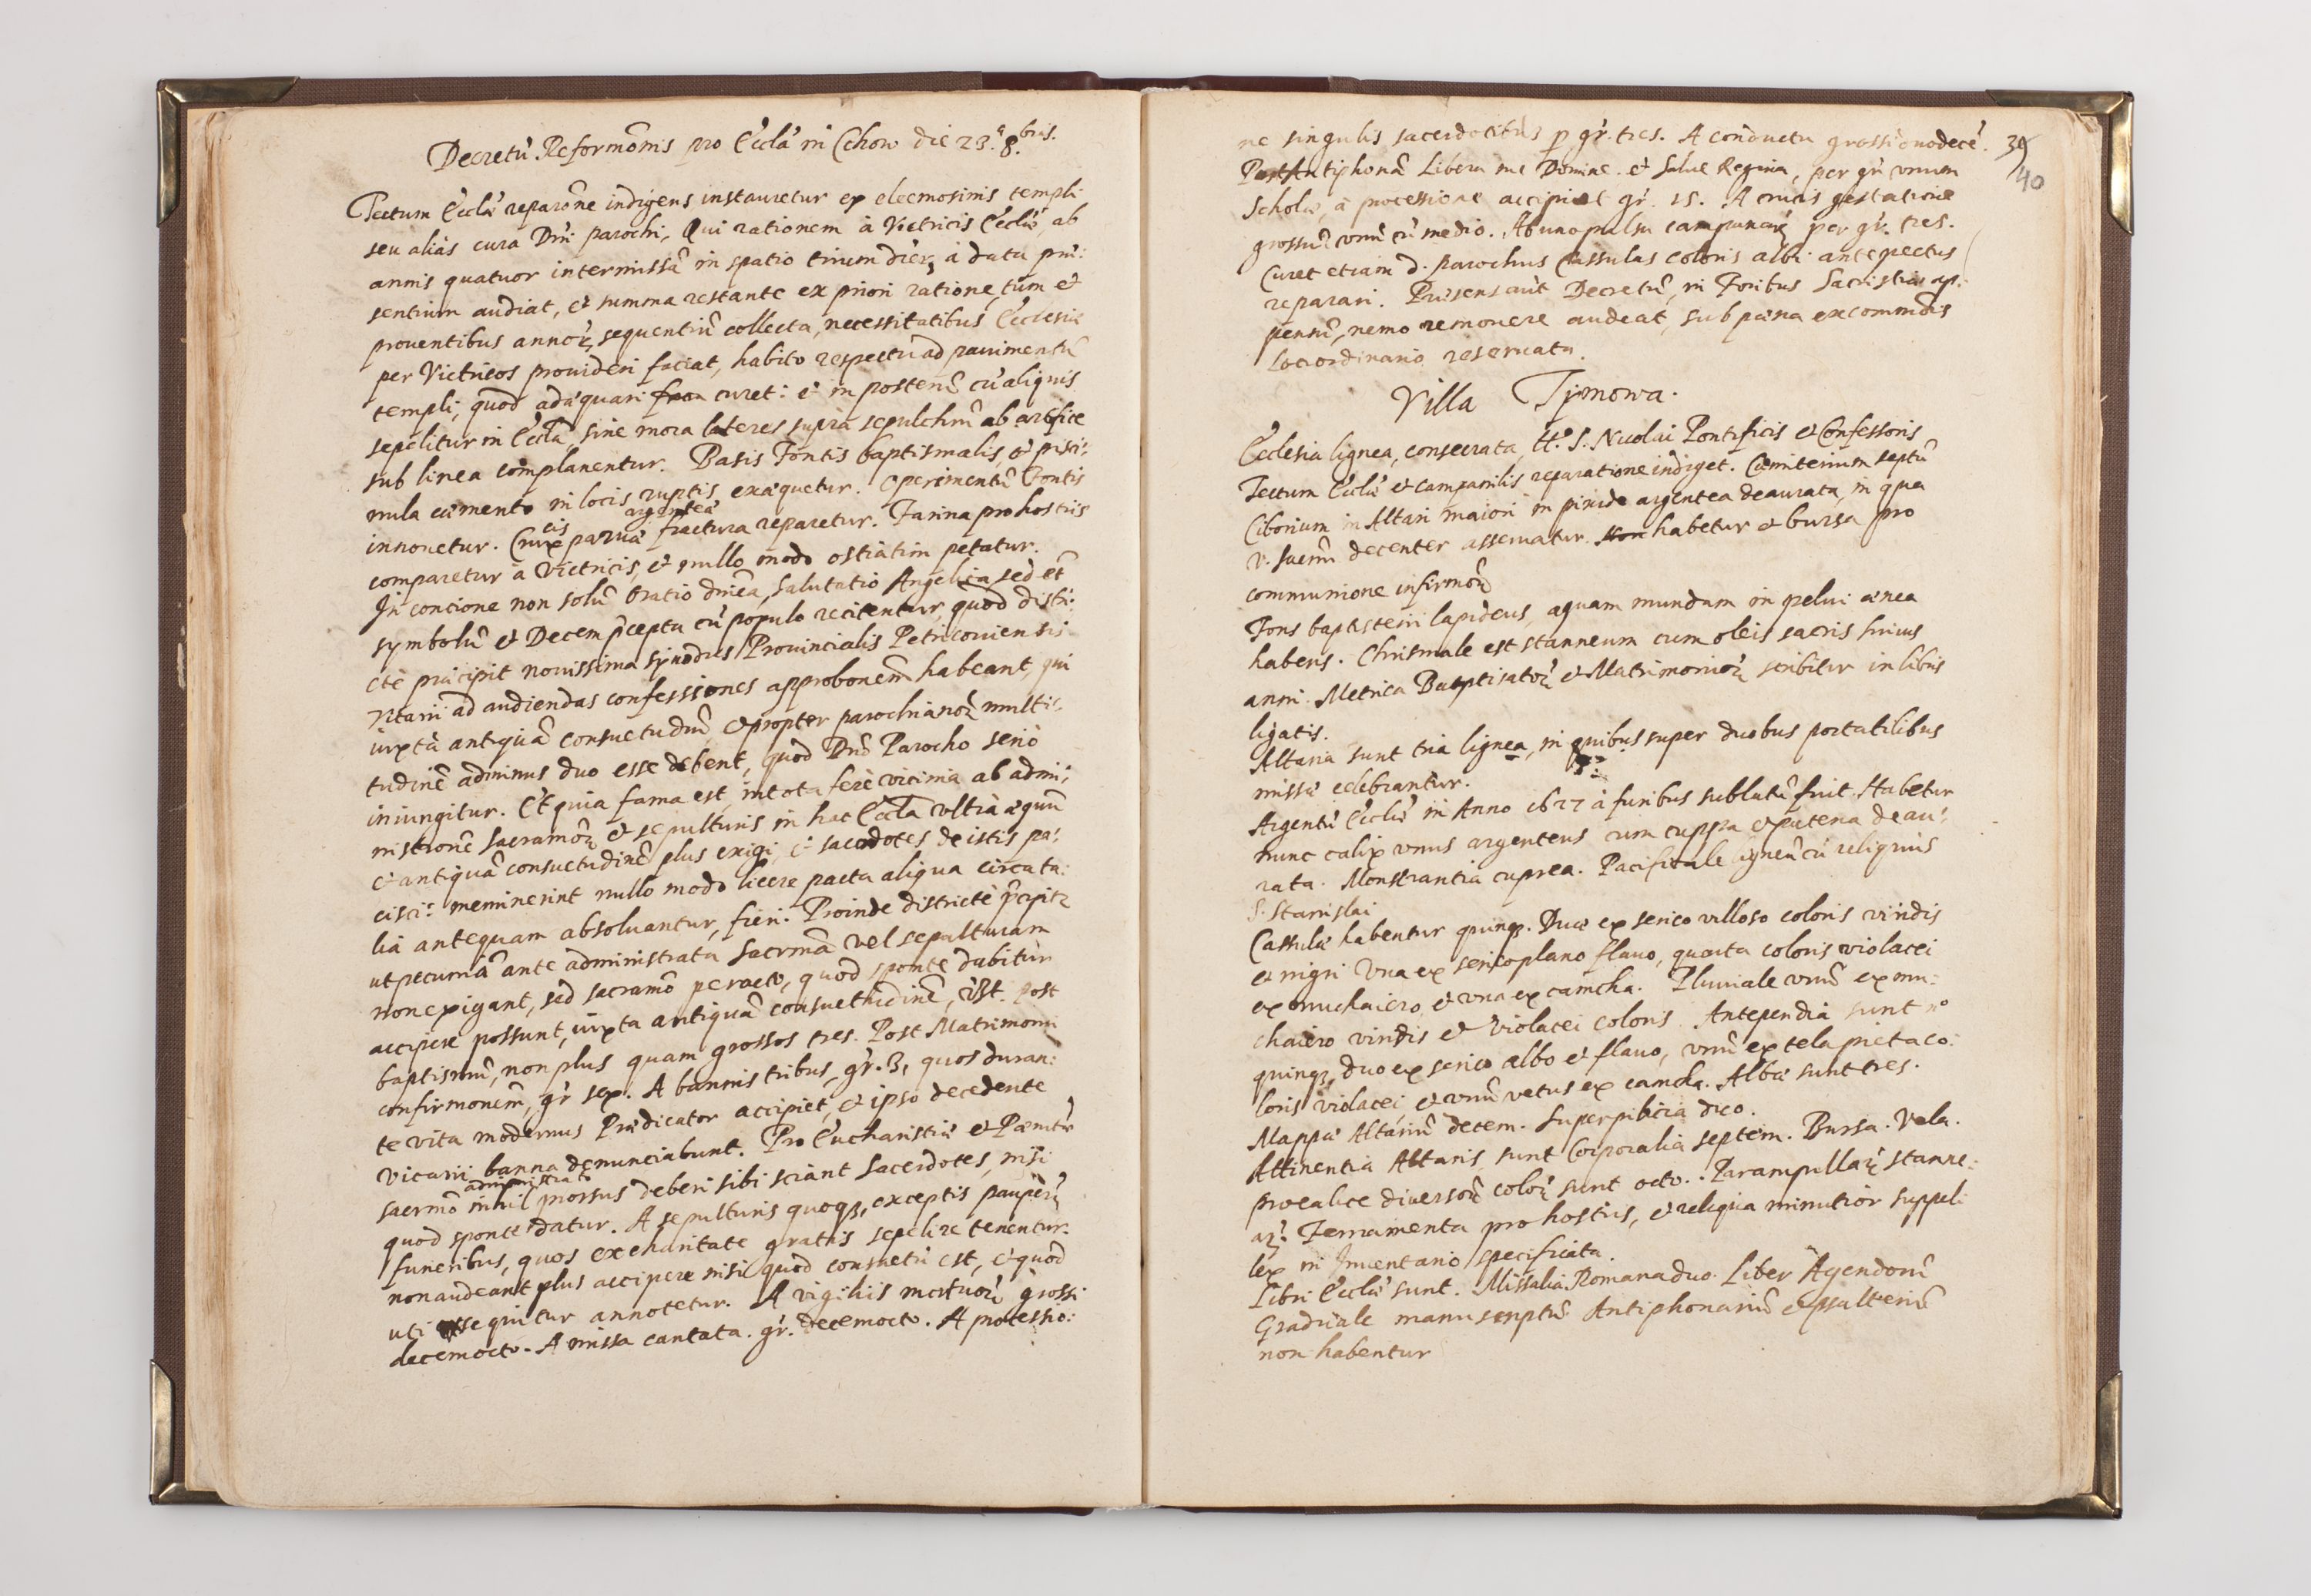 Decretũ Reformõnis pro Eccla in Cchow die 23.ª 8.bris.
Tectum Ecclæ reparõne indigens instauretur ex eleemosinis templi
seu aliàs cura Dni parochi, Qui rationem à Victricis Ecclæ, ab
annis quatuor intermissã in spatio trium dierum à data præ:
sentium audiat, et summa restante ex priori ratione, tum et
prouentibus annorum sequentiũ collecta, necessitatibus Ecclesiæ
per Victricos prouideri faciat, habito respectu ad pauimentũ
templi, quod adæquari curet: et in posterũ cũ aliquis
sepelitur in Eccla, sine mora lateres supra sepulchrũ ab artifice
sub linea complanentur. Basis Fontis baptismalis, et pisci:
nula cæmento in locis ruptis exæquetur. Operimentũ Fontis
innouetur. Crucis paruæ argenteæ fractura reparetur. Farina pro hostiis
comparetur à Victricis, et nullo modo ostiatim petatur.
In concione non solũ Oratio dnica, salutatio Angelica, sed et
symbolũ et Decem pcepta cũ populo recitentur, quod distri:
cte præcipit nouissima synodus Prouincialis Petricouiensis
Vicarii ad audiendas confessiones approbonem habeant, qui
iuxta antiquã consuetudinẽ, et propter parochianorũ multi:
tudinẽ adminus duo esse debent, quod Dno Parocho seriò
iniungitur. Et quia fama est, in tota ferè vicinia ab admi:
nistrone sacramorũ et sepulturis in hac Eccla vltrà æquũ
et antiquã consuetudinẽ plus exigi, et sacerdotes de istis pa:
cisci: meminerint nullo modo licere pacta aliqua circa ta:
lia antequam absoluantur, fieri. Proinde districtè pcipitur
ut pecuniã ante administrata sacrma vel sepulturam
non exigant, sed sacramo peracto, quod sponte dabitur
accipere possunt, iuxta antiquã consuetudinẽ, Post
baptismũ, non plus quam grossos tres. Post Matrimonii
confirmonem, gr sex. A bannis tribus, gr. 3, quos duran:
te vita modernus Prædicator accipiet, et ipso decedente
Vicarii banna denunciabunt. Pro Eucharistiæ et Pænitæ
sacrmo administrato nihil prorsus deberi sibi sciant Sacerdotes, nisi
quod sponte datur. A sepulturis quoq, exceptis pauperũ
funeribus, quos ex charitate gratis sepelire tenentur.
non audeant plus accipere nisi quod consuetũ est, et quod
uti sequitur annotetur. A vigiliis mortuorũ grossi
decemocto. A missa cantata. gr. decemocto. A processio:
ne singulis sacerdotibus p gr. tres. A conductu grossi nodecẽ. 39
Post Antiphonã Libera me Domine. et Salue Regina, per gr vnum 40
Scholæ, à processione accipiet gr. 15. A crucis gestatione
grossũ vnũ cũ medio. Ab uno pulsu campanarũ per gr. tres.
Curet etiam d. parochus Cassulas coloris albi ante pectus
reparari. Præsens aũt Decretũ, in Foribus Sacristiæ ap:
pensũ, nemo remouere audeat, sub pæna excommõis
Loci ordinario reseruata.
Villa Tymowa.
Ecclesia lignea, consecrata, tt. S. Nicolai Pontificis et Confessoris
Tectum Ecclæ et campanilis reparatione indiget. Cæmiterium septũ
Ciborium in Altari maiori in pixide argentea deaurata, in qua
V. Sacrm decenter asseruatur. habetur et bursa pro
communione infirmorũ
Fons baptisterii lapideus, aquam mundam in pelui ænea
habens. Chrismale est stanneum cum oleis sacris huius
anni. Metrica Baptisatorũ et Matrimoniorũ scribitur in libris
ligatis.
Altaria sunt tria lignea, in quibus super duobus portatilibus
missæ celebrantur.
Argentũ Ecclæ in Anno 1627 à furibus sublatũ fuit. Habetur
nunc calix vnus argenteus cum cuppa et patena deau:
rata. Monstrantia cuprea. Pacificale ligneũ cũ reliquiis
S. Stanislai
Cassulæ habentur quinq. Duæ ex serico villoso coloris viridis
et nigri Vna ex serico plano flauo, quarta coloris violacei
ex muchaiero, et vna ex camcha. Pluuiale vnũ ex mu:
chaiero viridis et violacei coloris. Antependia sunt nº
quinq, duo ex serico albo et flauo, vnũ ex tela picta co:
loris violacei, et vnũ vetus ex camcha. Albæ sunt tres.
Mappæ Altariũ decem. Superpilicia duo.
Attinentia Altaris sunt Corporalia septem. Bursa. Vela.
pro calice diuersorũ colorũ sunt octo. Par ampullarũ stanne:
arũ. Ferramenta pro hostiis, et reliqua minutior suppel:
lex in Inuentario specificata.
Libri Ecclæ sunt. Missalia Romana duo. Liber Agendorũ
Graduale manuscriptũ. Antiphonariũ et psalteriũ
non habentur